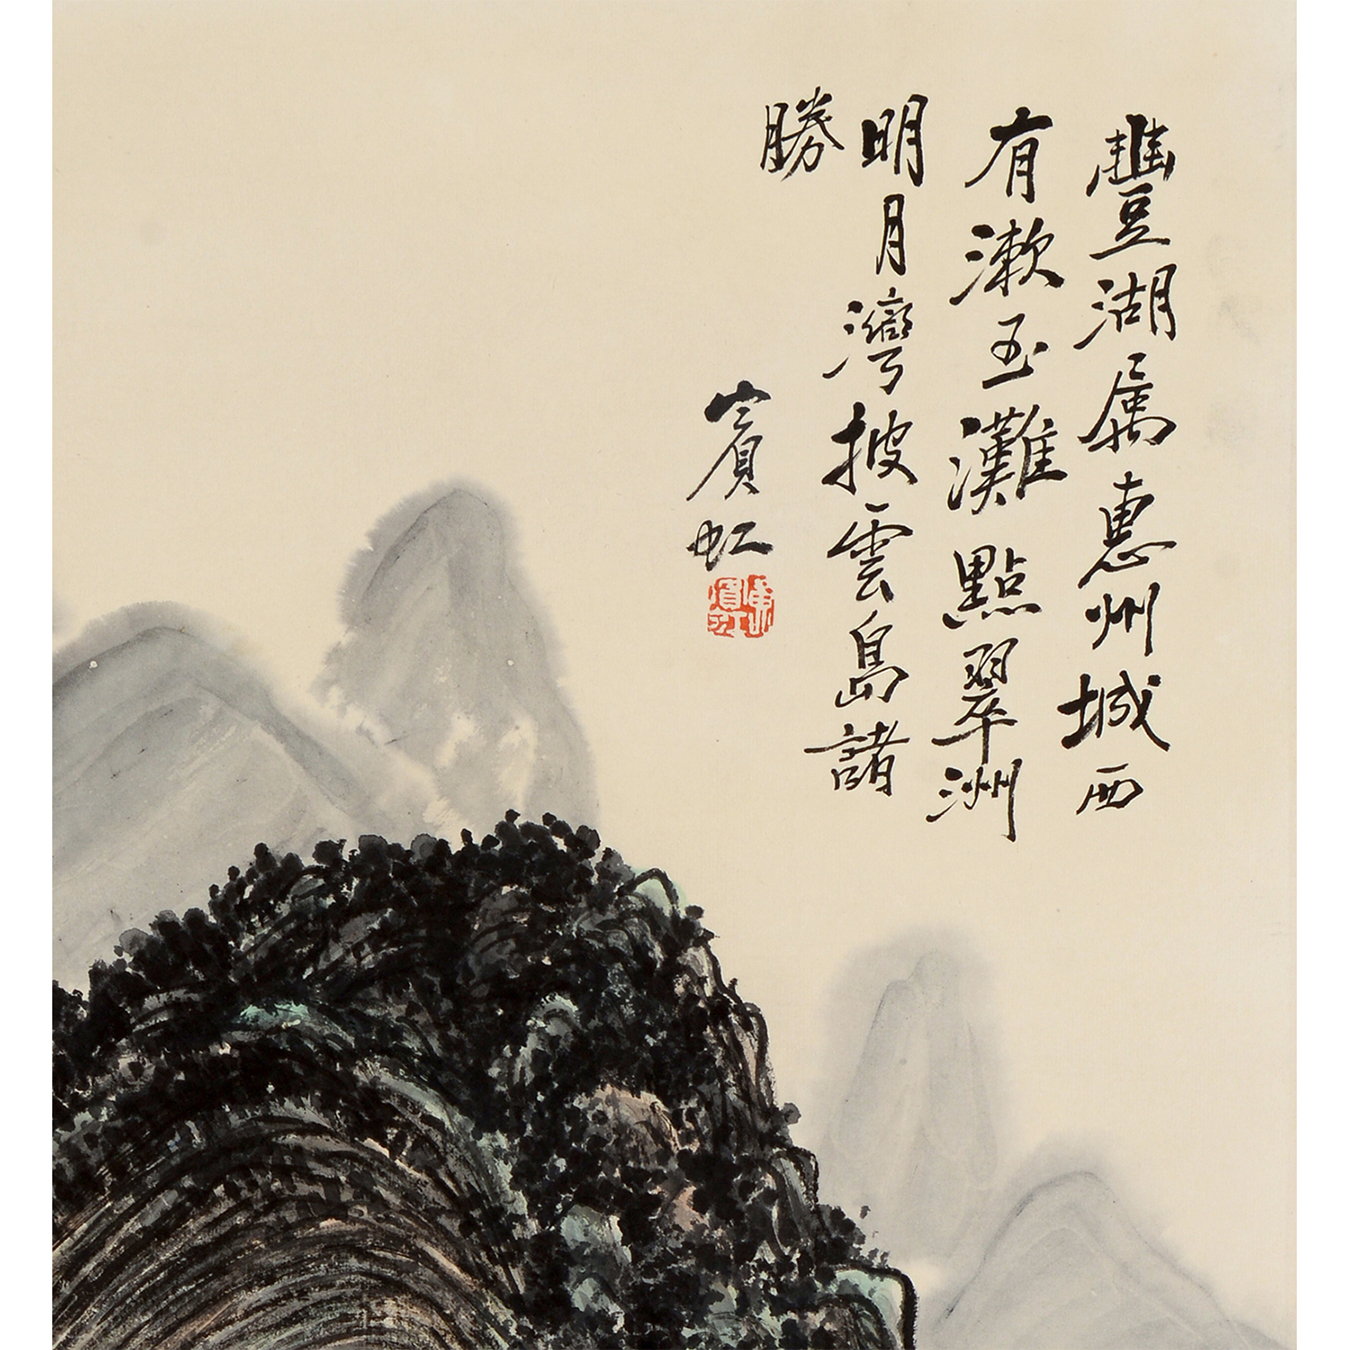 豐湖属惠州城西
有漱玉灘點翠洲
明月灣披雲島諸
勝
賓虹
黃賓虹